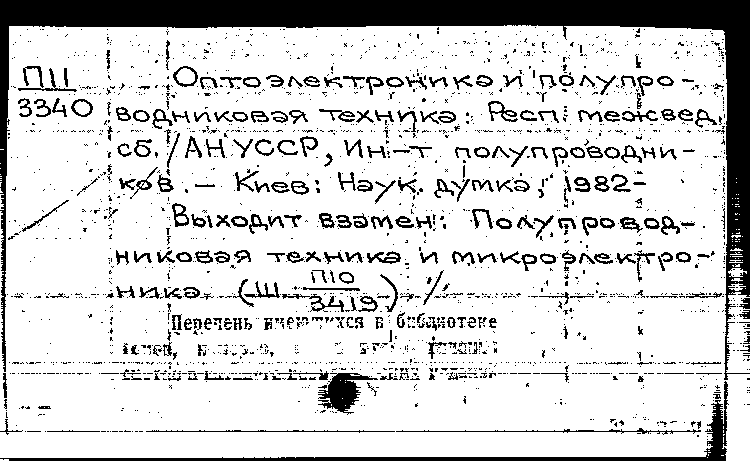 П11
3340
Оптоэлектроника и полупро-
водниковая техника: Респ. межвед.
сб. / АН УССР, Ин-т полупроводни-
ков. – Киев: Наук. думка, 1982-
Выходит взамен: Полупровод-
никовая техника и микроэлектро-
ника (Ш П10
3419) //
Перечень имеющихся в библиотеке